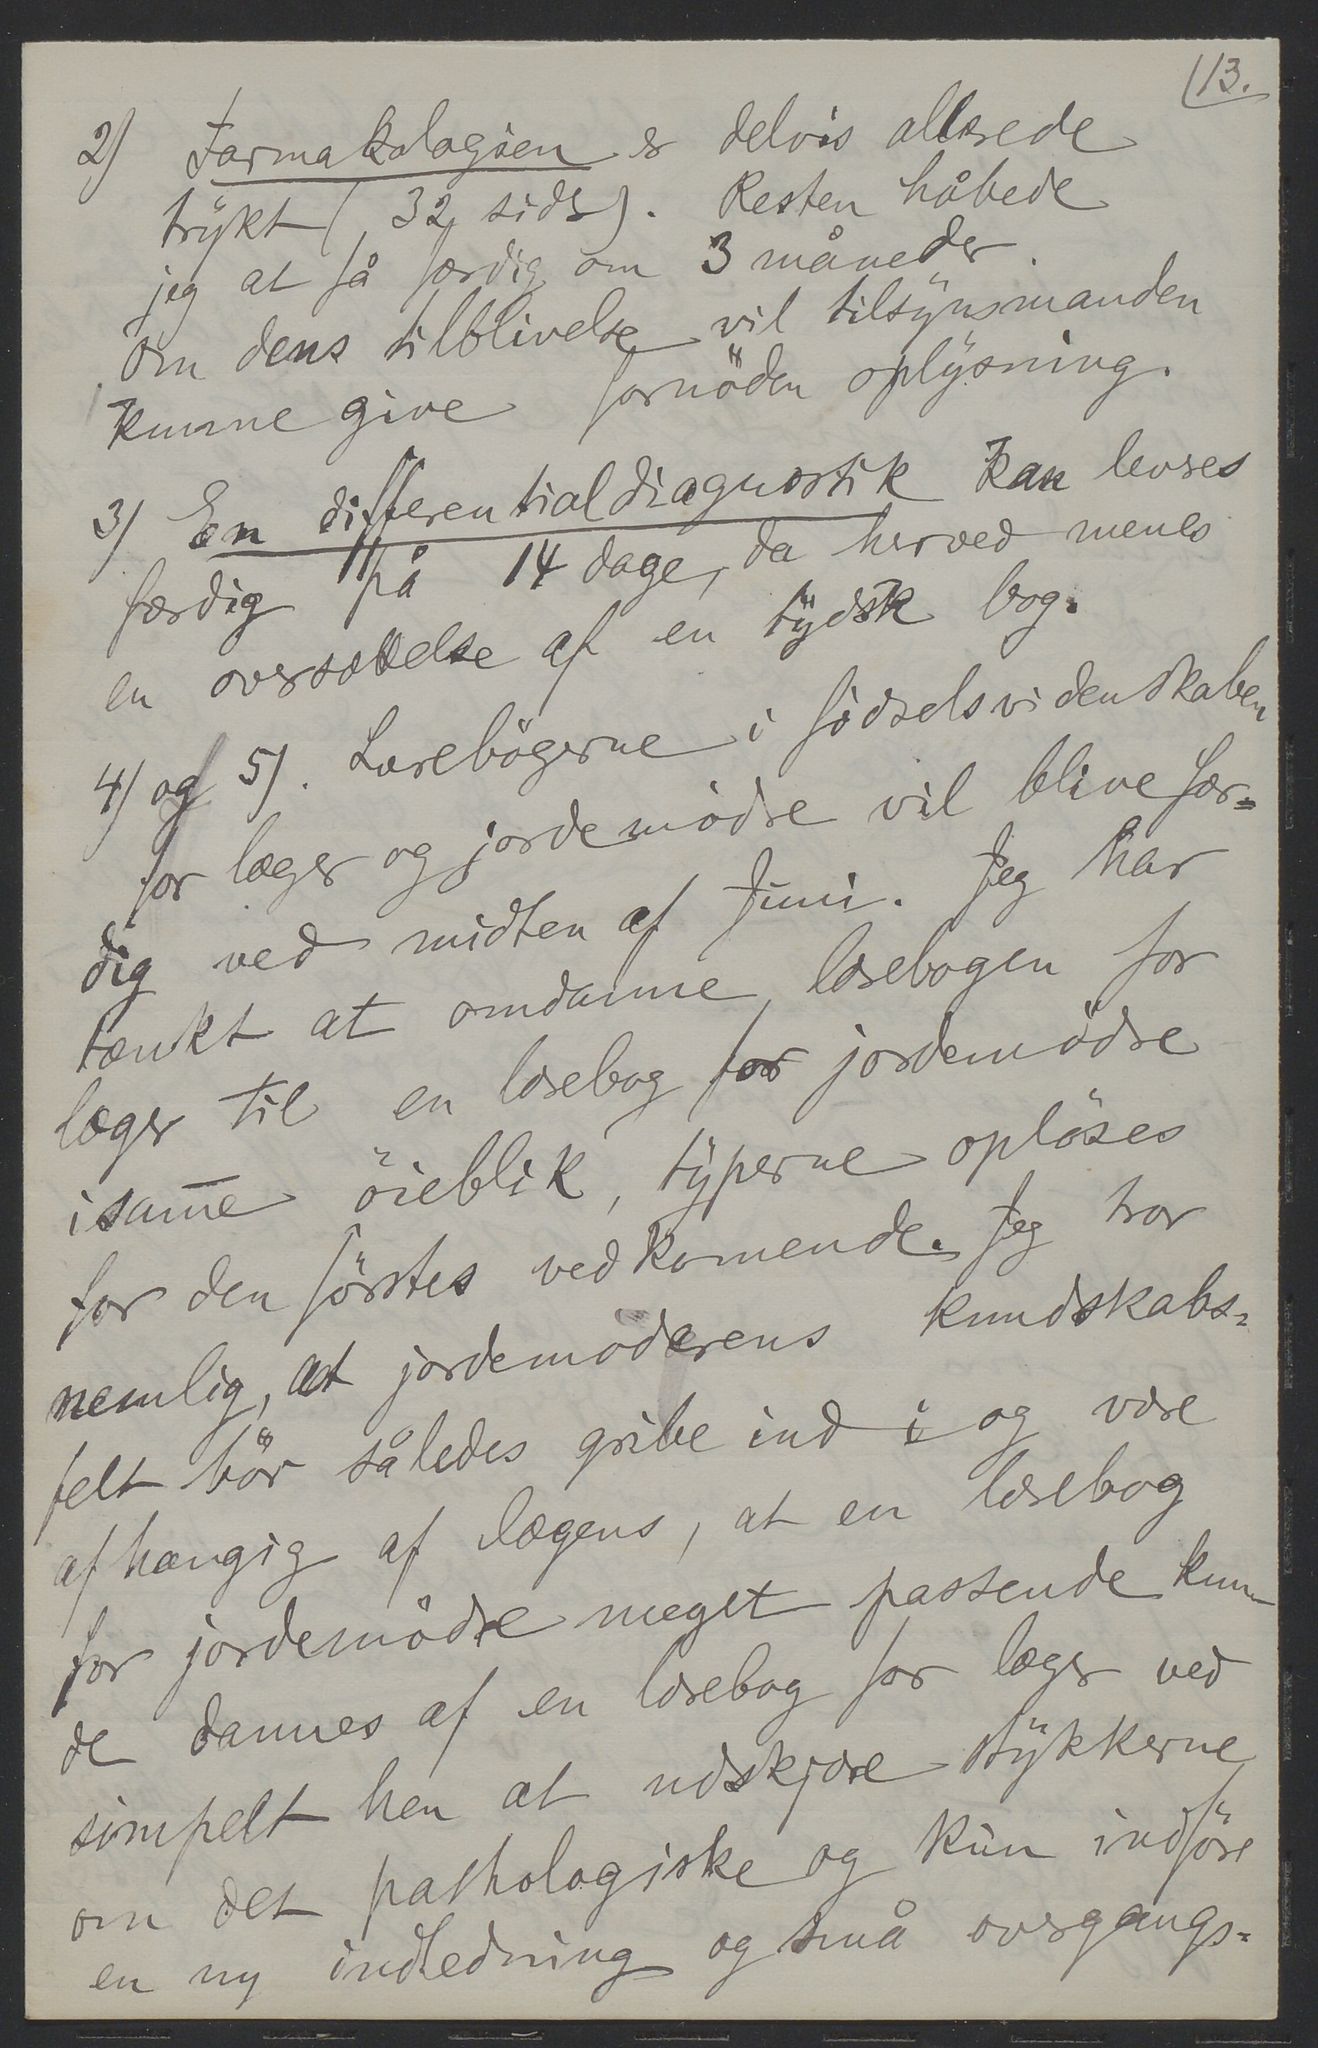 13.
2) Farmakologien er delvis allerede
trykt (32 sider). Resten håbede
jeg at få færdig om 3 måneder.
Om dens tilblivelse vil tilsynsmanden
kunne give fornöden oplysning.
3) En differentialdiagnostik kan leveres
færdig på 14 dage, da herved menes
en oversættelse af en tydsk bog.
4) og 5). Lærebögerne i födselsvidenskaben
for læger og jordemödre vil blive fær=
dig ved midten af Juni. Jeg har
tænkt at omdanne lærebogen for
læger til en lærebog for jordemödre
i sam̄e öieblik, typerne oplöses
for den förstes vedkomende. Jeg tror
nemlig, at jordemoderens kundskabs=
felt bör således gribe ind i og være
afhængig af lægens, at en lærebog
for jordemödre meget passende kun
de dannes af en lærebog for læger ved
simpelt hen at udskjære stykkerne
om det pathologiske og kun indföre
en ny indledning og små overgangs=